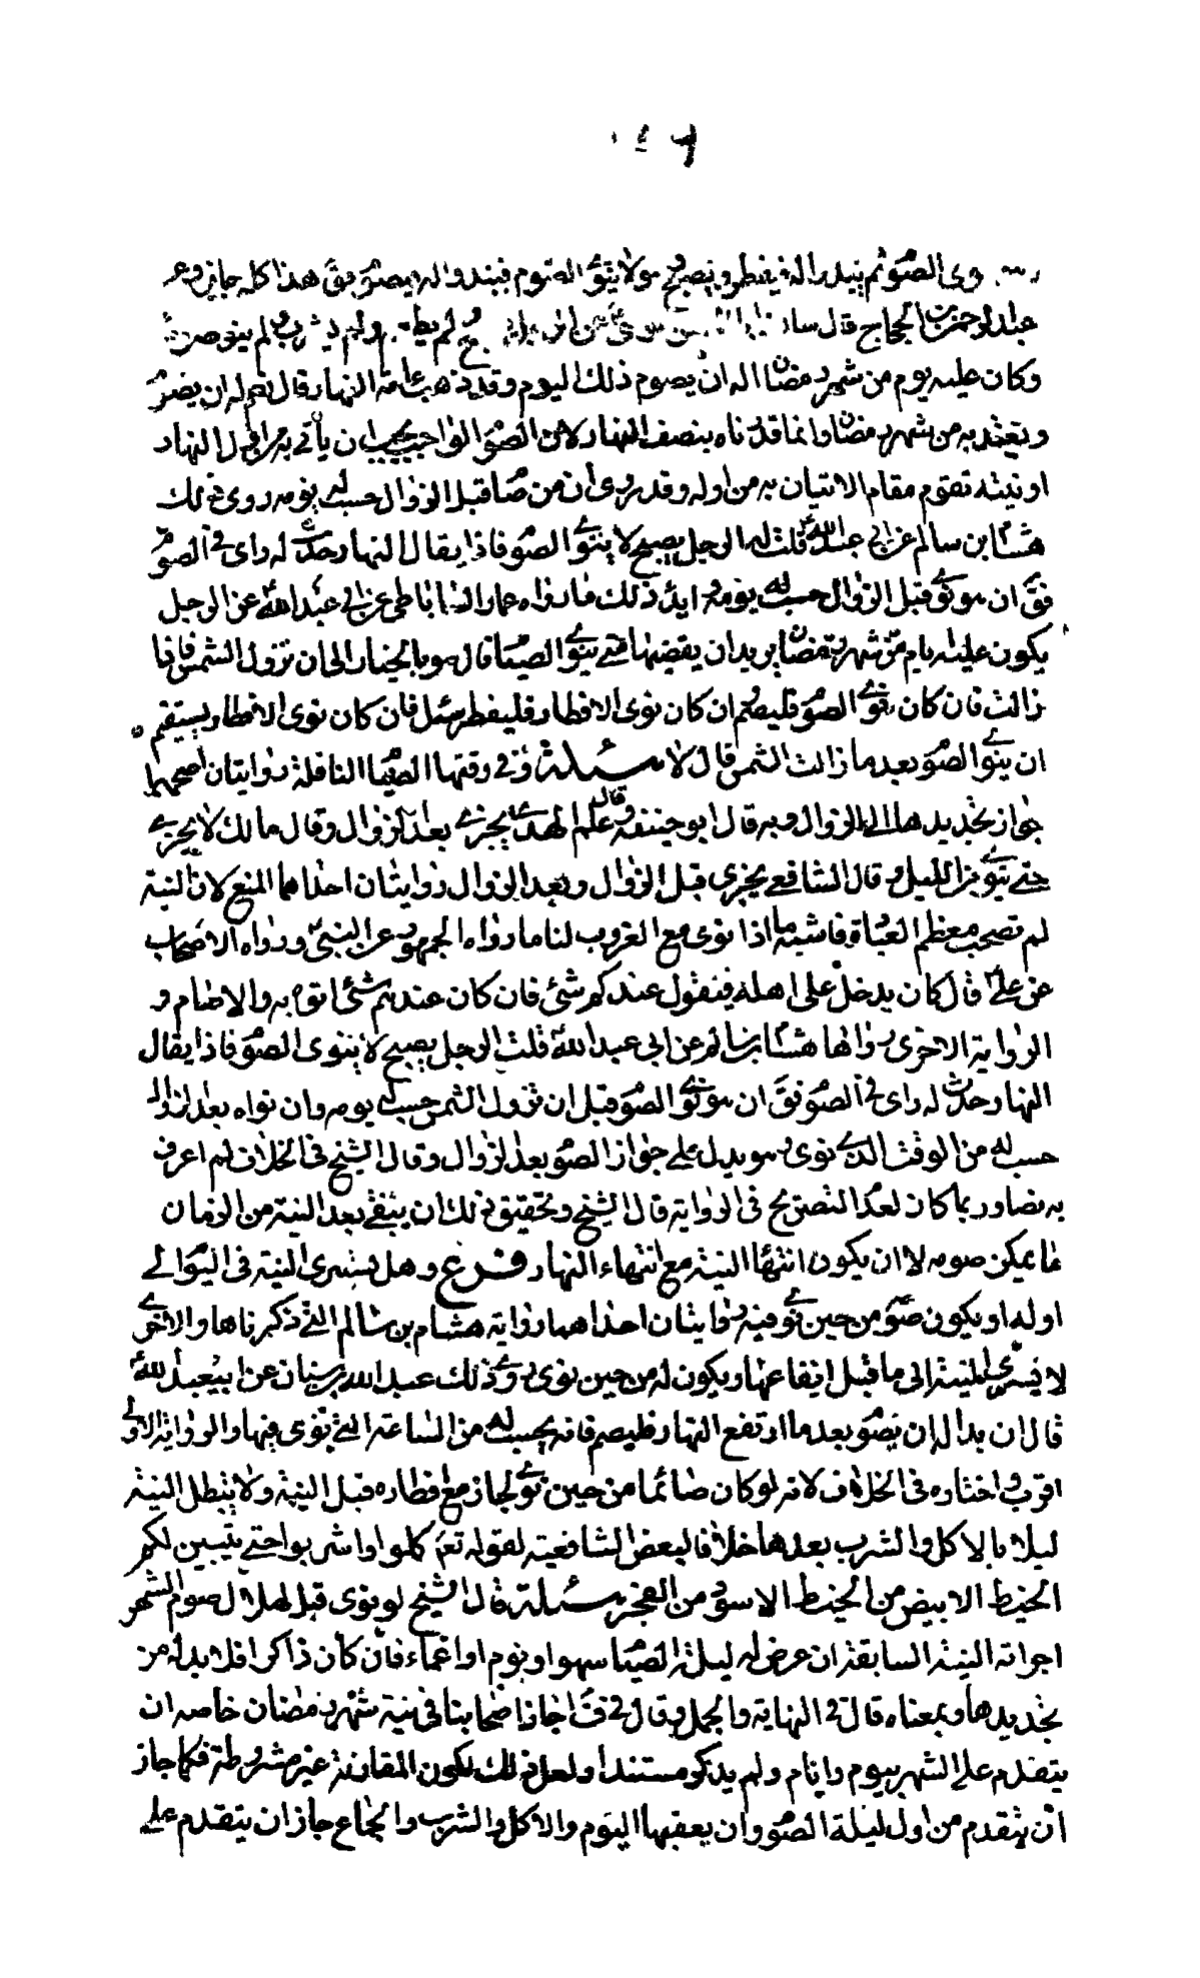 الصوم ثم يبدو له فيفطر ويصبح هو لا ينوي الصوم فيبدو له فيصوم فق هذا كله جايز وعن
عبد الرحمن بن الحجاج قال سالت ولم يطعم ولم يشرب ولم ينو صوما
وكان عليه يوم من شهر رمضان اله ان يصوم ذلك اليوم وقد ذهب عامة النهار قال نعم له ان يصوم
ويعتد به من شهر رمضان وانما قدرناه بنصف النهار لان الصوم الواجب يجب ان يأتي به من اول النهار
او نيته تقوم مقام الاتيان به من اوله وقد روى ان من صام قبل الزوال حسب له يومه روى ذلك
هشام بن سالم عن ابي عبد الله ع قلت له الرجل يصبح لا ينوي الصوم فاذا يقال النهار حدث له راى في الصوم
فق ان هو نوى قبل الزوال حسب له يومه وايد ذلك ما رواه عمار الساباطي عن ابي عبد الله ع عن الرجل
يكون عليه ايام من شهر رمضان يريد ان يقضيها متى ينوي الصيام قال هو بالخيار الى ان تزول الشمس فاذا
زالت فان كان نوى الصوم فليصم وان كان نوى الافطار فليفطر سئل فان كان نوى الافطار يستقيم
ان ينوي الصوم بعد ما زالت الشمس قال لا مسئلة وفي وقتها الصيام النافلة روايتان اصحهما
جواز تجديدها الى الزوال وبه قال ابو حنيفة وقال علم الهدى يجزي بعد الزوال وقال مالك لا يجزي
حتى ينوي من الليل وقال الشافعي يجزي قبل الزوال وبعد الزوال روايتان احداهما المنع لان النية
لم تصحب معظم العبادة فاشبه ما اذا نوى مع الغروب لنا ما رواه الجمهور عن النبي ص ورواه الاصحاب
عن علي ع قال كان يدخل على اهله فيقول عندكم شئ فان كان عندهم شئ اتوه به والا صام و
الرواية الاخرى رواها هشام بن سالم عن ابي عبد الله ع قلت الرجل يصبح لا ينوى الصوم فاذا يقال
النهار حدث له راى في الصوم فق ان هو نوى الصوم قبل ان تزول الشمس حسب له يومه وان نواه بعد الزوال
حسب له من الوقت الذي نوى وهو يدل على جواز الصوم بعد الزوال وقال الشيخ في الخلاف لم اعرف
به نصا وربما كان لعدم التصريح في الرواية قال الشيخ وتحقيق ذلك ان يبقى بعد النية من الزمان
ما يمكن صومه لا ان يكون انتهاء النية مع انتهاء النهار فرع وهل يسرى النية في اليوم الى
اوله او يكون صوم من حين نوى فيه روايتان احداهما رواية هشام بن سالم التي ذكرناها والاخرى
لا يسرى النية الى ما قبل ايقاعها ويكون له من حين نوى روى ذلك عبد الله بن سنان عن ابي عبد الله ع
قال ان بدا له ان يصوم بعد ما ارتفع النهار فليصم فانه يحسب له من الساعة التي نوى فيها والرواية الاولى
اقرب واختاره في الخلاف لانه لو كان صائما من حين نوى لجاز مع افطاره قبل النية ولا يبطل النية
ليلا بالاكل والشرب بعدها خلافا لبعض الشافعية لقوله تعم كلوا واشربوا حتى يتبين لكم
الخيط الابيض من الخيط الاسود من الفجر مسئلة قال الشيخ لو نوى قبل الهلال صوم الشهر
اجزأته النية السابقة ان عرض له ليلة الصيام سهو او نوم او اغماء فان كان ذاكرا فلا بد له من
تجديدها وبمعناه قال في النهاية والجمل وقال في ف اجاز اصحابنا في نية شهر رمضان خاصه ان
يتقدم على الشهر بيوم وايام ولم يذكر مستندا ولعل ذلك لكون المقارنة غير مشروطة فكما جاز
ان يتقدم من اول ليلة الصوم وان يعقبها النوم والاكل والشرب والجماع جاز ان يتقدم على